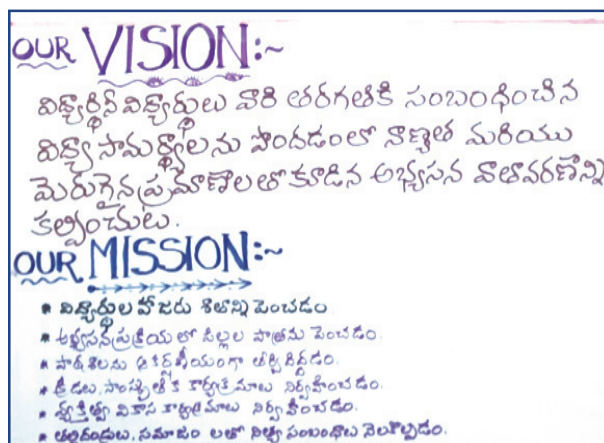 OUR VISION:~
విద్యార్థినీ విద్యార్థులు వారి తరగతికి సంబంధించిన
విద్యా సామర్థ్యాలను పొందడంలో నాణ్యత మరియు
మెరుగైన ప్రమాణాలతో కూడిన అభ్యసన వాతావరణాన్ని
కల్పించుట.
OUR MISSION:~
* విద్యార్థుల హాజరు శాతాన్ని పెంచడం.
* అభ్యసన ప్రక్రియ లో పిల్లల పాత్రను పెంచడం.
* పాఠశాలను ఆకర్షణీయంగా తీర్చిదిద్దడం.
* క్రీడలు, సాంస్కృతిక కార్యక్రమాలు నిర్వహించడం.
* వ్యక్తిత్వ వికాస కార్యక్రమాలు నిర్వహించడం.
* తల్లిదండ్రులు, సమాజం లతో నిత్య సంబంధాలు నెలకొల్పడం.